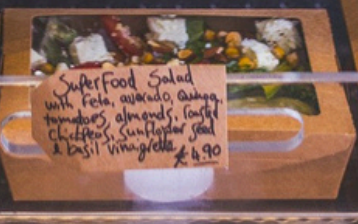 Superfood Salad
with feta, avocado, Quinoa,
tomatoes, almonds, roasted
Chickpeas, Sunflower seed
& basil vinaigrette
£4.90